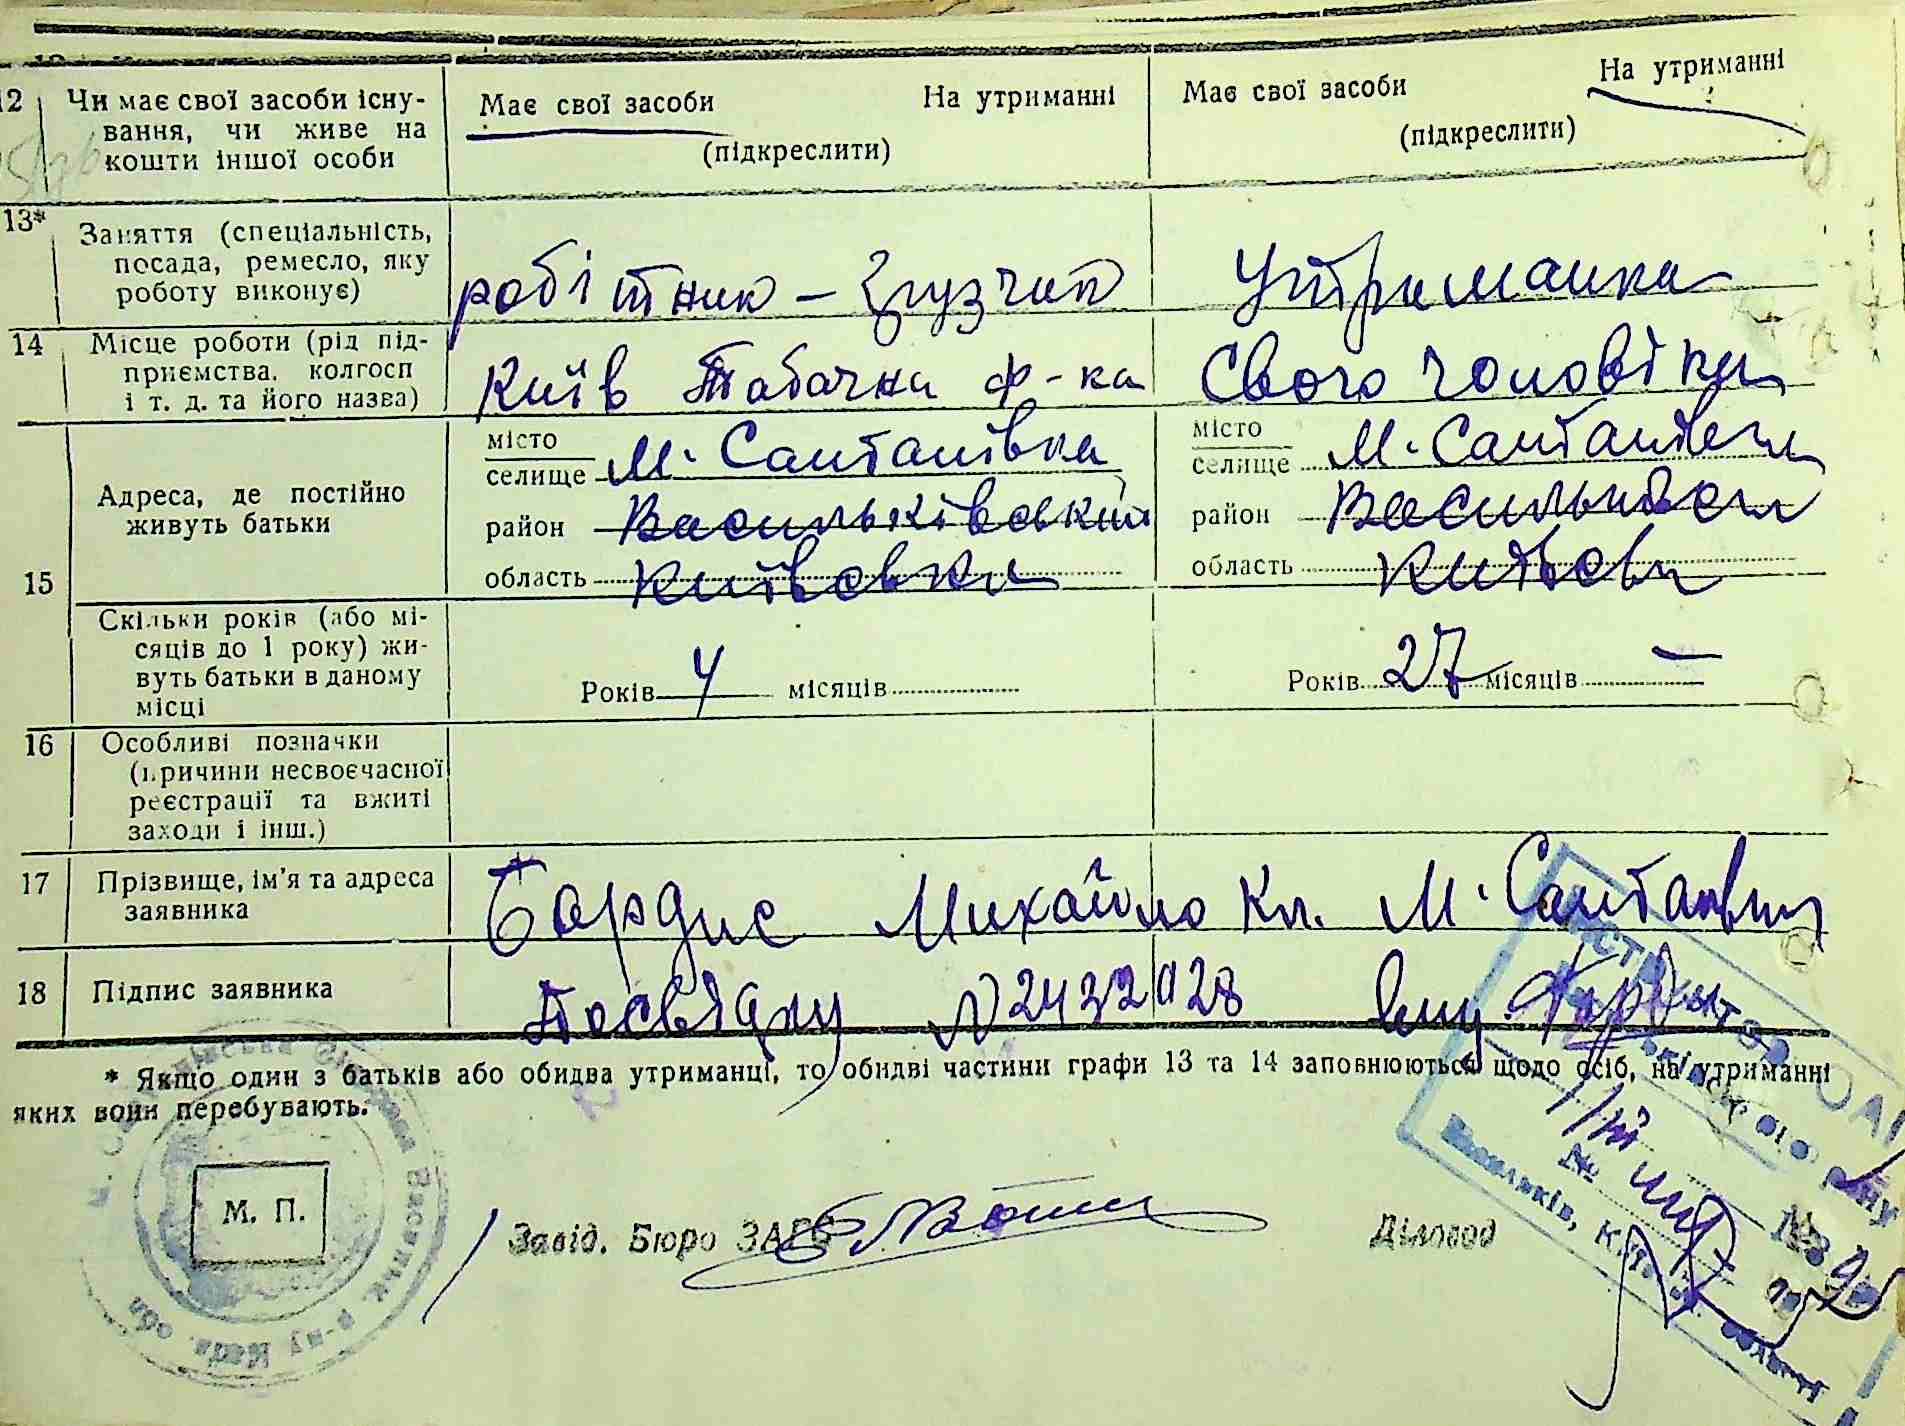 12 Чи має свої засоби існу-
вання, чи живе на
кошти іншої особи
Має свої засоби На утриманні
(підкреслити)
Має свої засоби На утриманні
(підкреслити)
13* Заняття (спеціальність,
посада, ремесло, яку
роботу виконує)
робітник – Грузчик
Утриманка
14 Місце роботи (рід під-
приємства, колгосп
і т. д. та його назва)
Київ Табачна ф-ка
Свого чоловіка
15 Адреса, де постійно
живуть батьки
місто
селище М. Салтанівка
район Васильківський
область Київська
місто
селище М. Салтанівка
район Васильків
область Київськ
Скільки років (або мі-
сяців до 1 року) жи-
вуть батьки в даному
місці
Років 4 місяців
Років 27 місяців –
16 Особливі позначки
(причини несвоєчасної
реєстрації та вжиті
заходи і інш.)
17 Прізвище, ім'я та адреса
заявника
Бардис Михайло Кл. М. Салтанівка
18 Підпис заявника
Посвідку № 2432928
* Якщо один з батьків або обидва утриманці, то обидві частини графи 13 та 14 заповнюються щодо осіб, на утриманні
яких вони перебувають.
М. П.
Завід. Бюро ЗАГС
Діловод